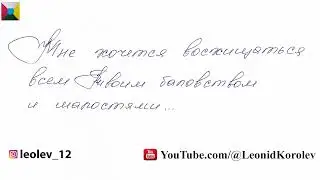 Мне хочется восхищаться
всем Твоим баловством
и шалостями...
leolev_12
YouTube.com/@LeonidKorolev